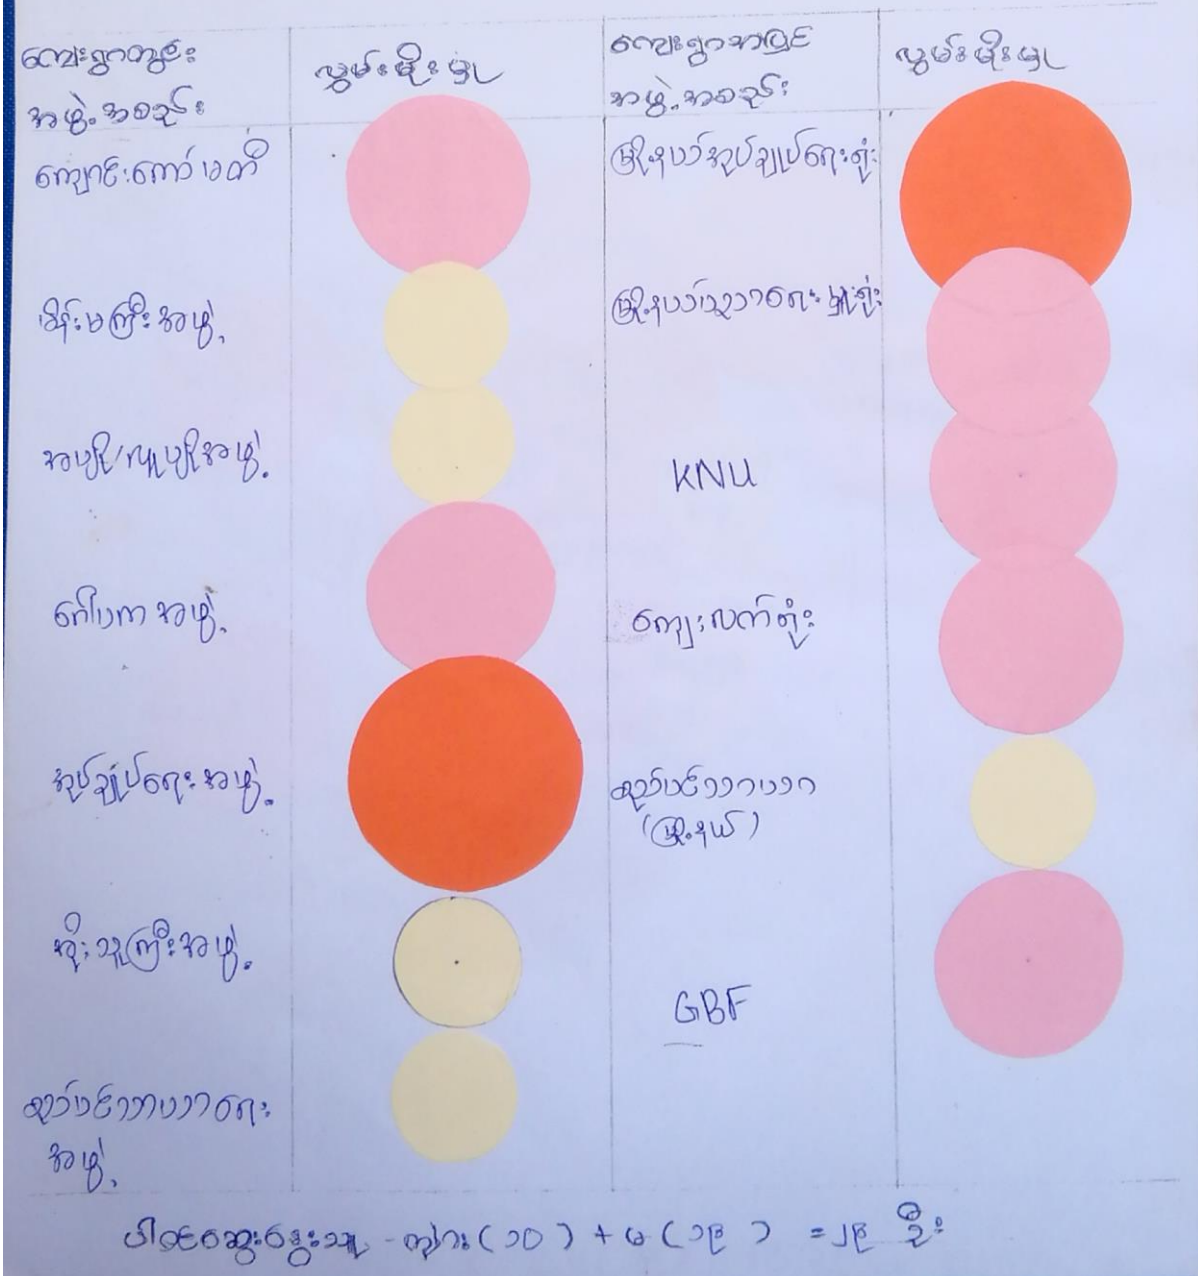 ကျေးရွာတွင်း
အဖွဲ့အစည်း
လွှမ်းမိုးမှု
ကျေးရွာအပြင်
အဖွဲ့အစည်း
လွှမ်းမိုးမှု
ကျောင်းကော်မတီ
မြို့နယ်အုပ်ချုပ်ရေးရုံး
မိန်းမကြီးအဖွဲ့
မြို့နယ်ပညာရေးမှူးရုံး
အပျို/လူပျိုအဖွဲ့
KNU
ဂေါပကအဖွဲ့
ကျေးလက်ရုံး
အုပ်ချုပ်ရေးအဖွဲ့
စည်ပင်သာယာ
(မြို့နယ်)
အိုးသူကြီးအဖွဲ့
GBF
စည်ပင်သာယာရေး
အဖွဲ့
ပါဝင်ဆွေးနွေးသူ - ကျား (၁၀) + မ (၁၉) = ၂၉ ဦး